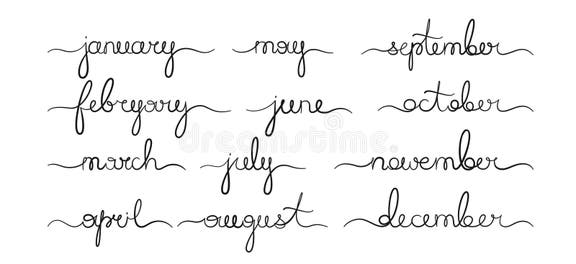 january may september
febryary june october
march july november
april auugust december
dreamstime